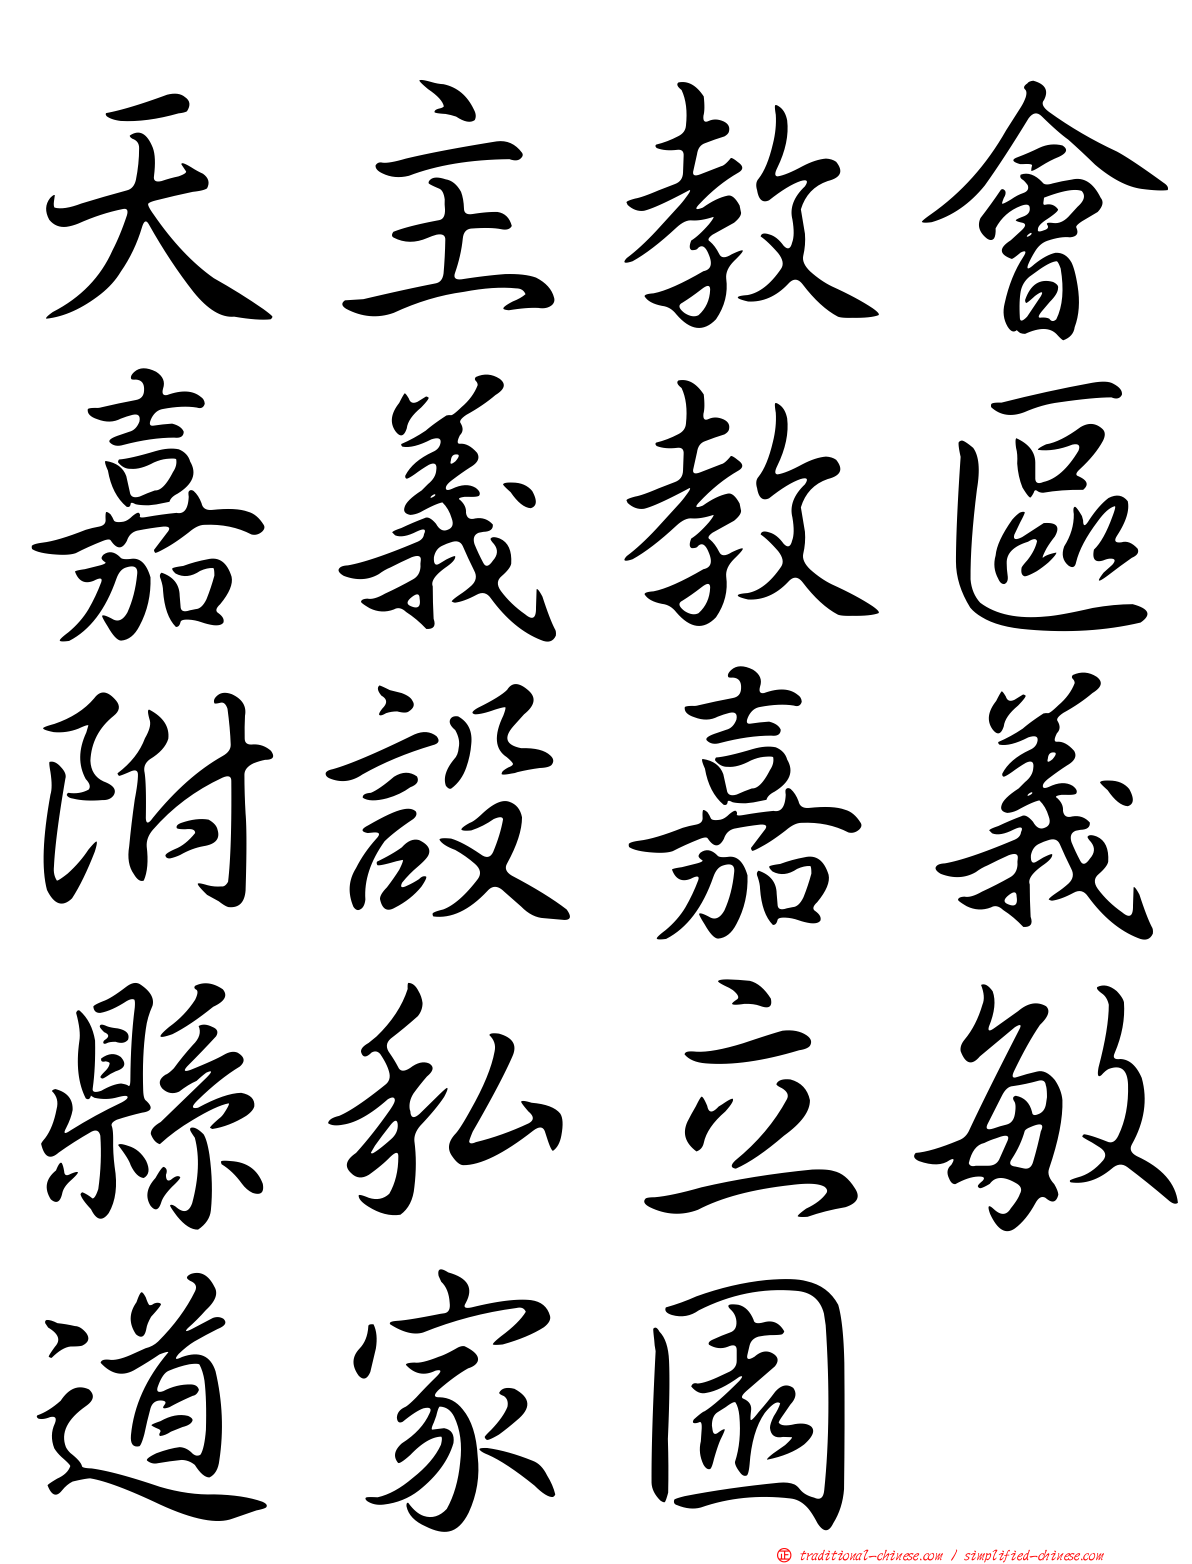 天主教會
嘉義教區
附設嘉義
縣私立敏
道家園
㊣ traditional-chinese.com / simplified-chinese.com